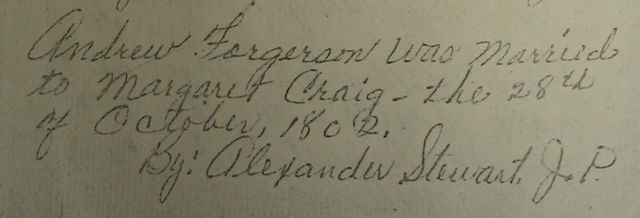 Andrew Forgerson was Married
to Margaret Craig - the 28th
of October, 1802.
By: Alexander Stewart, J. P.